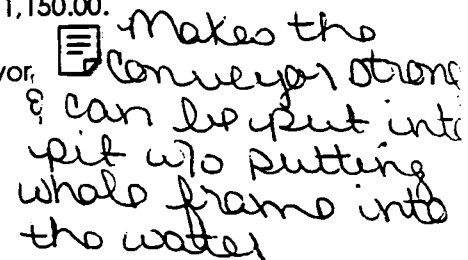 1,150.00.
Makes the
yor, conveyor strong
& can be put into
pit w/o putting
whole frame into
the water